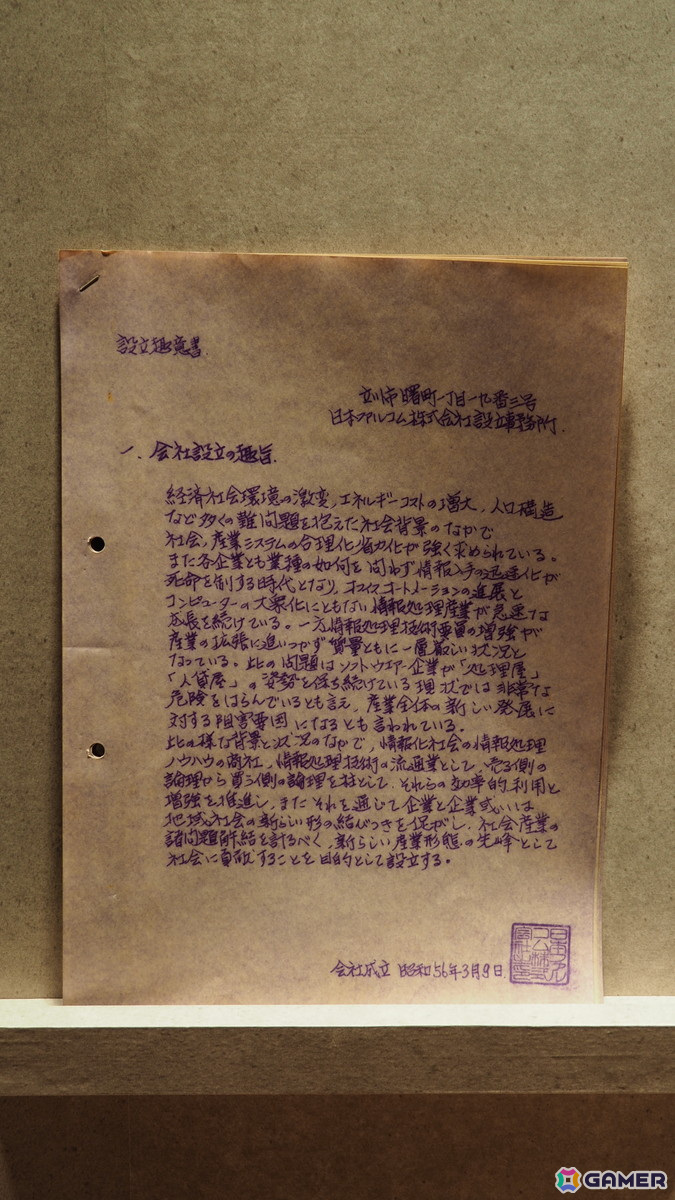 設立趣意書.
立川市曙町一丁目一九番三号
日本ファルコム株式会社設立事務所.
一、会社設立の趣旨.
経済社会環境の激変，エネルギーコストの増大，人口構造
など多くの難問題を抱えた社会背景のなかで
社会，産業システムの合理化，省力化が強く求められている。
また各企業とも業種の如何を問わず情報入手の迅速化が
死命を制する時代となり，オフィスオートメーションの進展と
コンピューターの大衆化にともない情報処理産業が急速な
成長を続けている。一方情報処理技術要員の増強が
産業の拡張に追いつかず質量ともに一層厳しい状況と
なっている。此の問題はソフトウエアー企業が「処理屋」
「人貸屋」の姿勢を保ち続けている現状では非常な
危険をはらんでいるとも言え，産業全体の新しい発展に
対する阻害要因になるとも言われている。
此の様な背景と状況のなかで，情報化社会の情報処理
ノウハウの商社，情報処理技術の流通業として，売る側の
論理から買う側の論理を柱として，それらの効率的利用と
増強を推進し，またそれを通じて企業と企業或いは
地域社会の新らしい形の結びつきを促がし，社会産業の
諸問題解結を計るべく，新らしい産業形態の先峰として
社会に貢献することを目的として設立する。
会社成立 昭和56年3月9日
GAMER